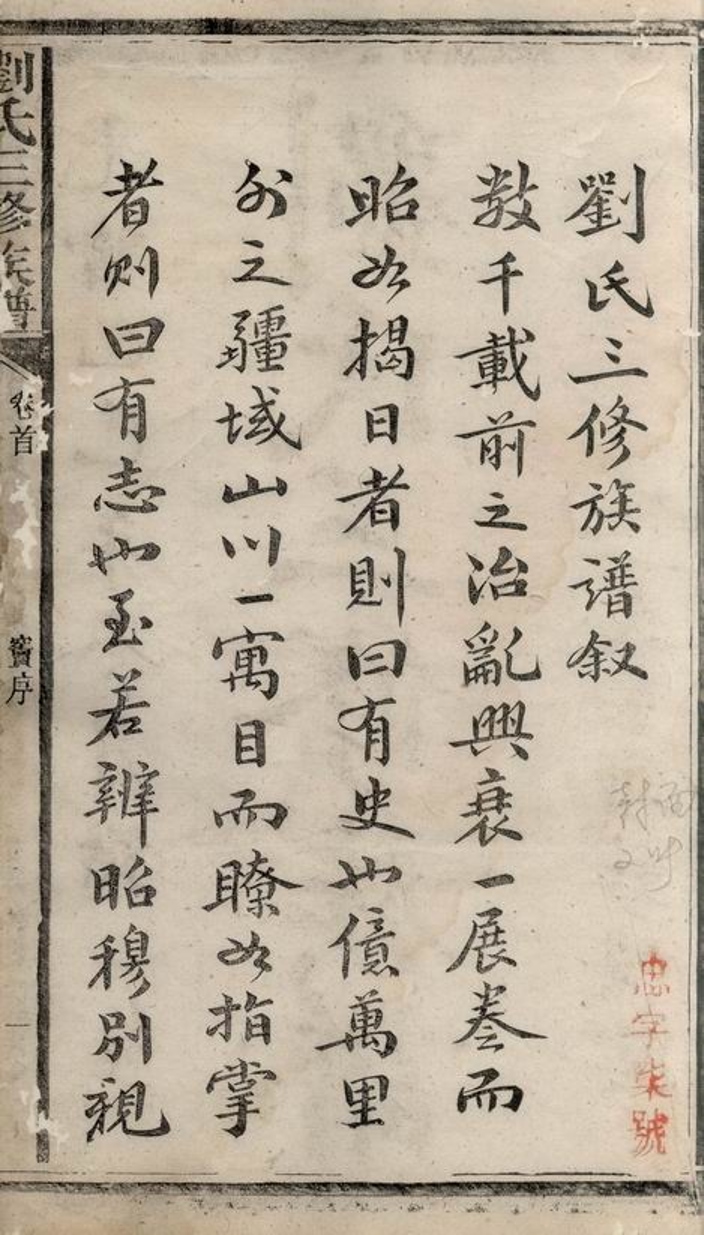 劉氏三修族譜叙
数千載前之治亂興衰一展卷而
昭如揭日者則曰有史也億萬里
外之疆域山川一寓目而瞭如指掌
者则曰有志也至若辨昭穆別親
忠字柒號
劉氏三修族譜
卷首
賓序
一